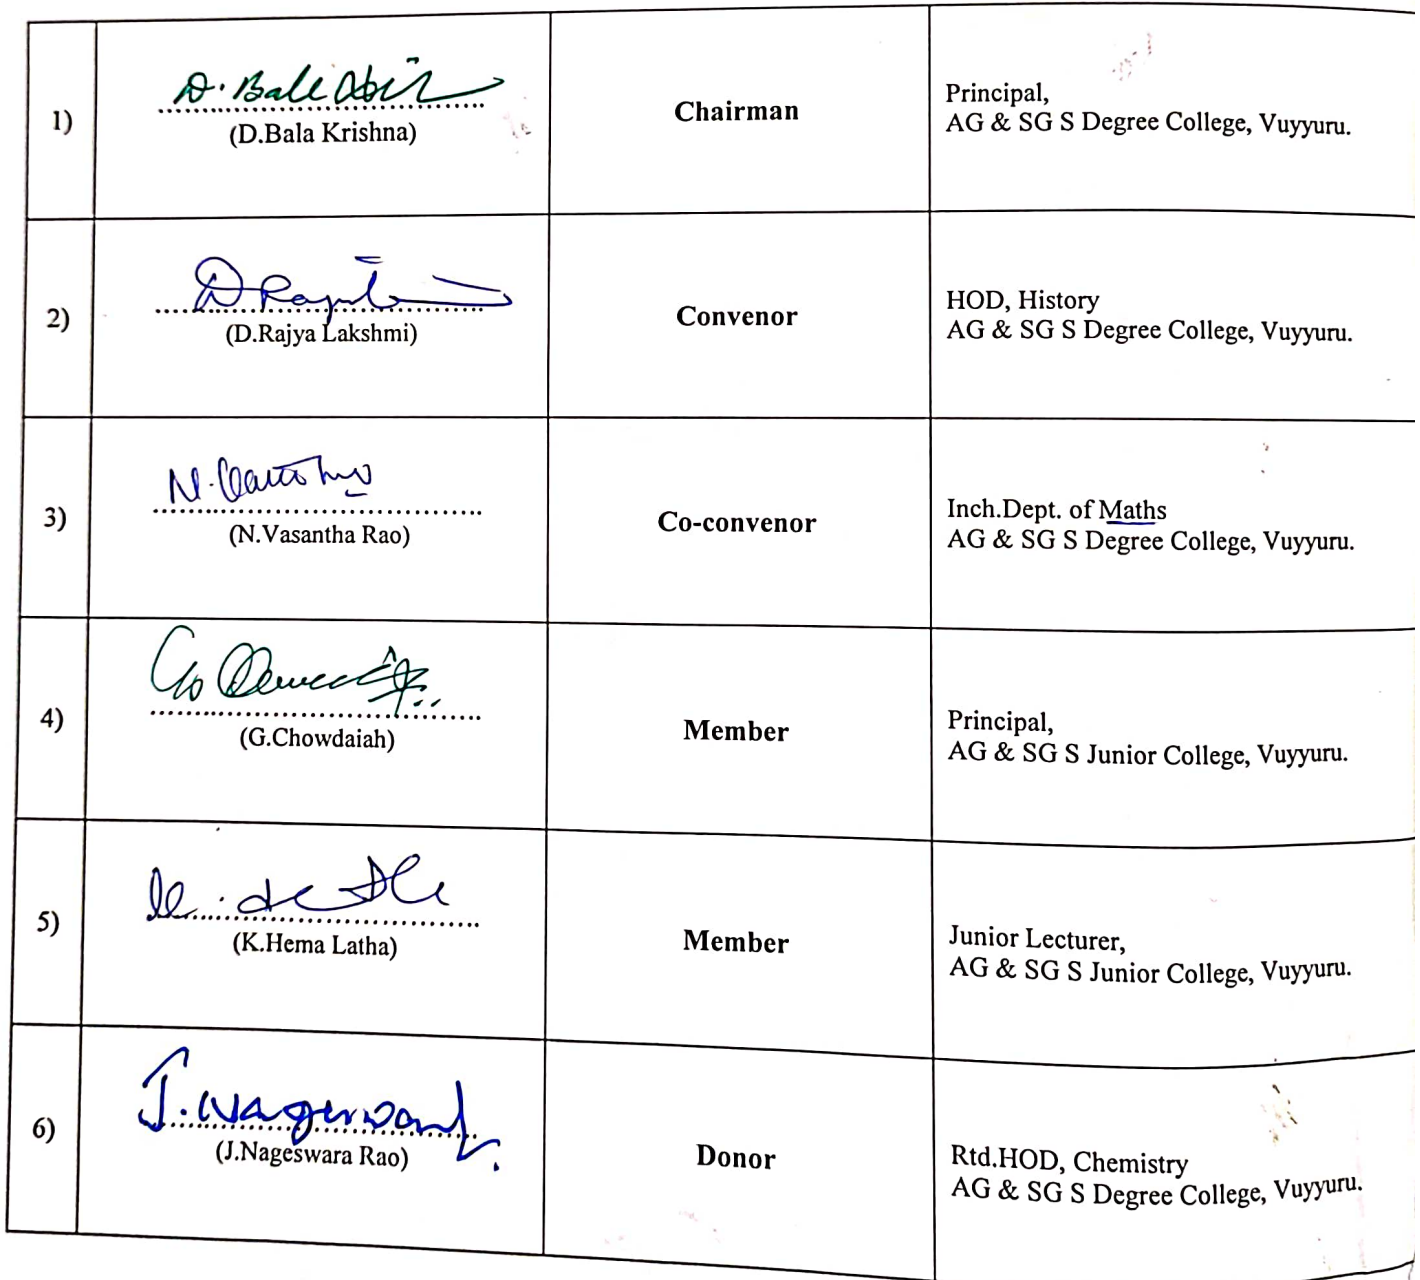 1)
D. Bala
(D.Bala Krishna)
Chairman
Principal,
AG & SG S Degree College, Vuyyuru.
2)
D Rajya
(D.Rajya Lakshmi)
Convenor
HOD, History
AG & SG S Degree College, Vuyyuru.
3)
N.
(N.Vasantha Rao)
Co-convenor
Inch.Dept. of Maths
AG & SG S Degree College, Vuyyuru.
4)
(G.Chowdaiah)
Member
Principal,
AG & SG S Junior College, Vuyyuru.
5)
(K.Hema Latha)
Member
Junior Lecturer,
AG & SG S Junior College, Vuyyuru.
6)
J. Nageswara
(J.Nageswara Rao)
Donor
Rtd.HOD, Chemistry
AG & SG S Degree College, Vuyyuru.